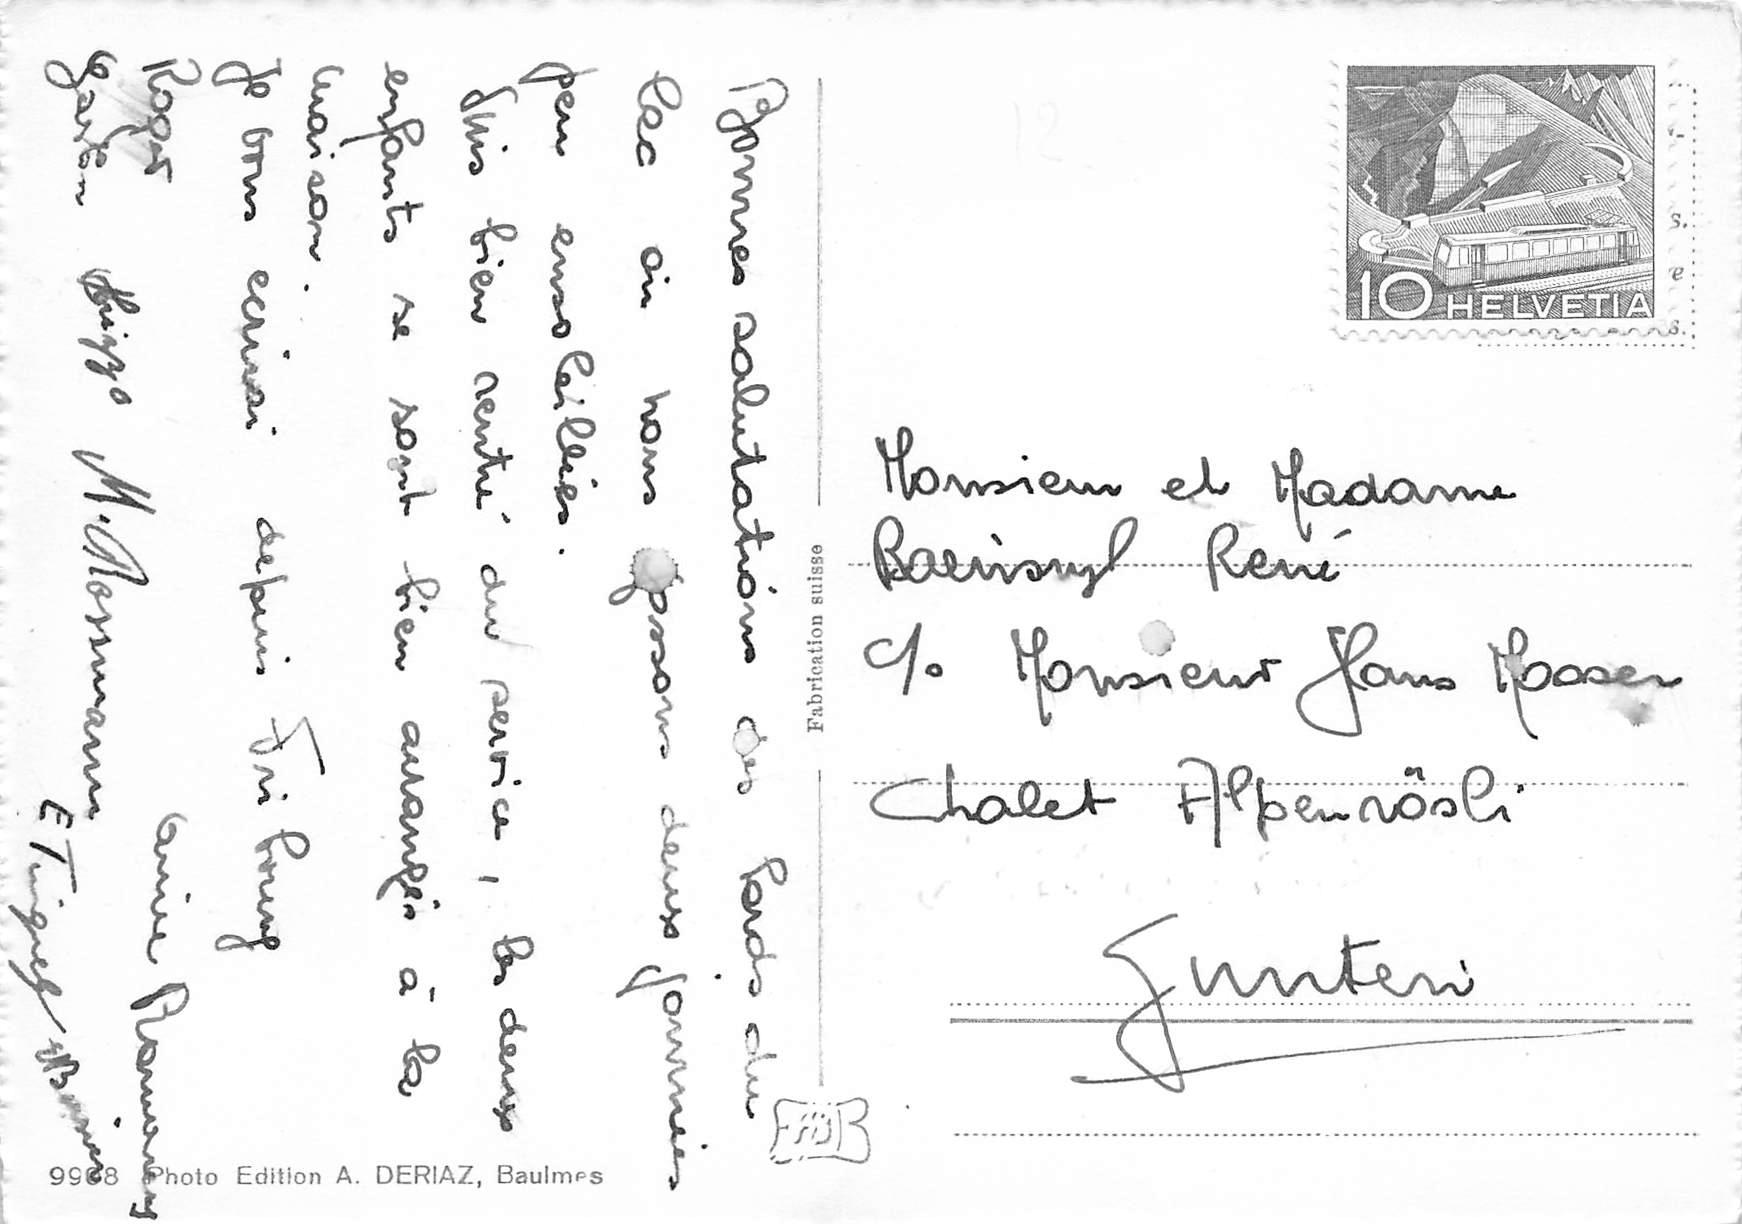 Bonnes salutations des bords du
lac ou nous passons deux journées
peu ensoleillées.
Suis bien rentré du service, les deux
enfants se sont bien arrangés à la
maison.
Je vous ecrirai depuis Fribourg
Roger
Gaston
M. Rossmann
Fabrication suisse
10 HELVETIA
Monsieur et Madame
Baeriswyl René
c/o Monsieur Hans Mooser
Chalet Alpenrösli
Gunten
9968 Photo Edition A. DERIAZ, Baulmes